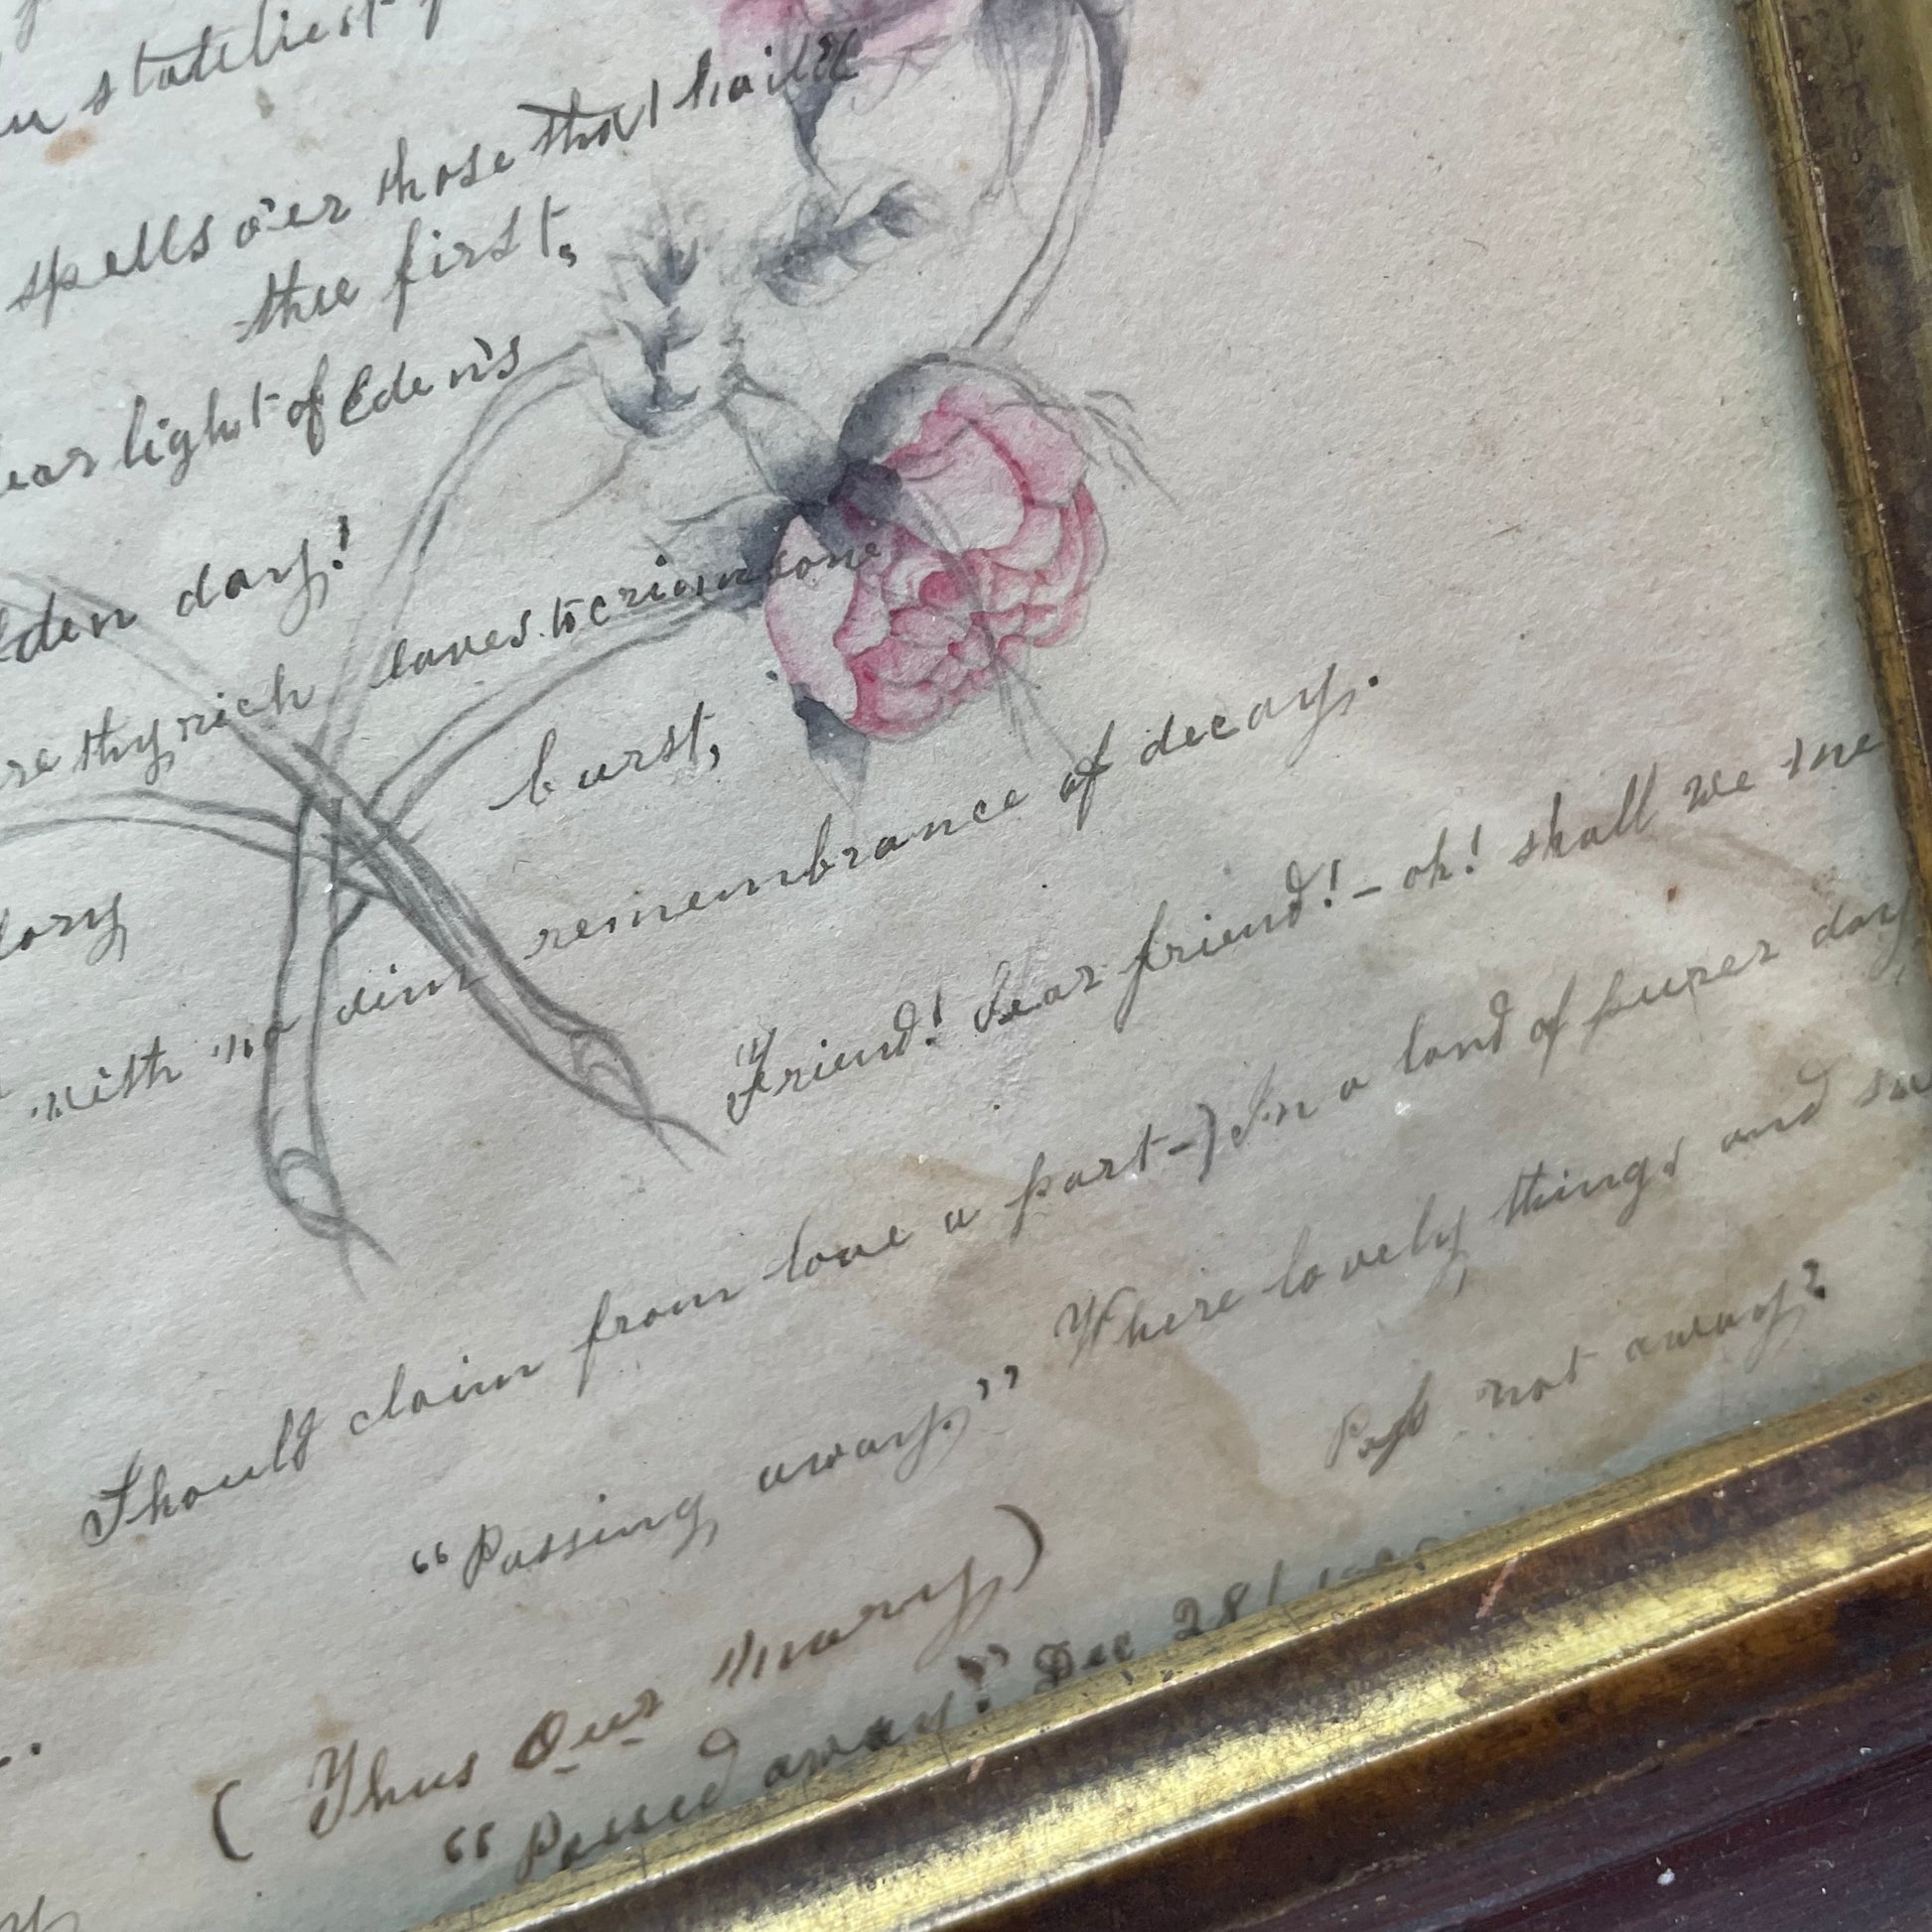 stateliest
spells o'er those that hail'd
thee first,
light of Eden's
day!
thy rich leaves to crimson
burst,
with no dim remembrance of decay.
"Friend! dear friend!- oh! shall we me
Should claim from love a part-) In a land of purer day,
"Passing away." Where lovely things and sw
Pass not away?
( Thus Our Mary)
"Passed away!" Dec 28